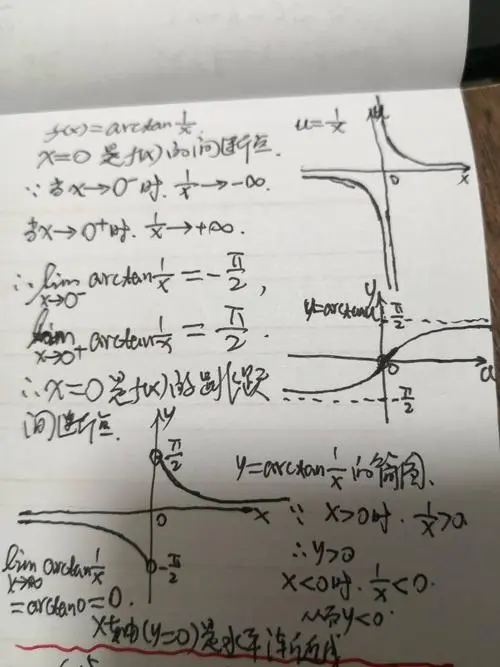 f(x)=arctan 1/x
x=0是f(x)的间断点.
∵当x→0⁻时. 1/x→-∞.
当x→0⁺时. 1/x→+∞.
∴lim x→0⁻ arctan 1/x = -π/2,
lim x→0⁺ arctan 1/x = π/2.
∴x=0是f(x)的跳跃
间断点.
u=1/x
u
0
x
y
y=arctanu
π/2
0
u
-π/2
y
π/2
0
x
-π/2
y=arctan 1/x 的简图.
∵ x>0时. 1/x>0
∴y>0
x<0时. 1/x<0.
从而y<0.
lim x→∞ arctan 1/x
=arctan0=0.
x轴(y=0)是水平渐近线